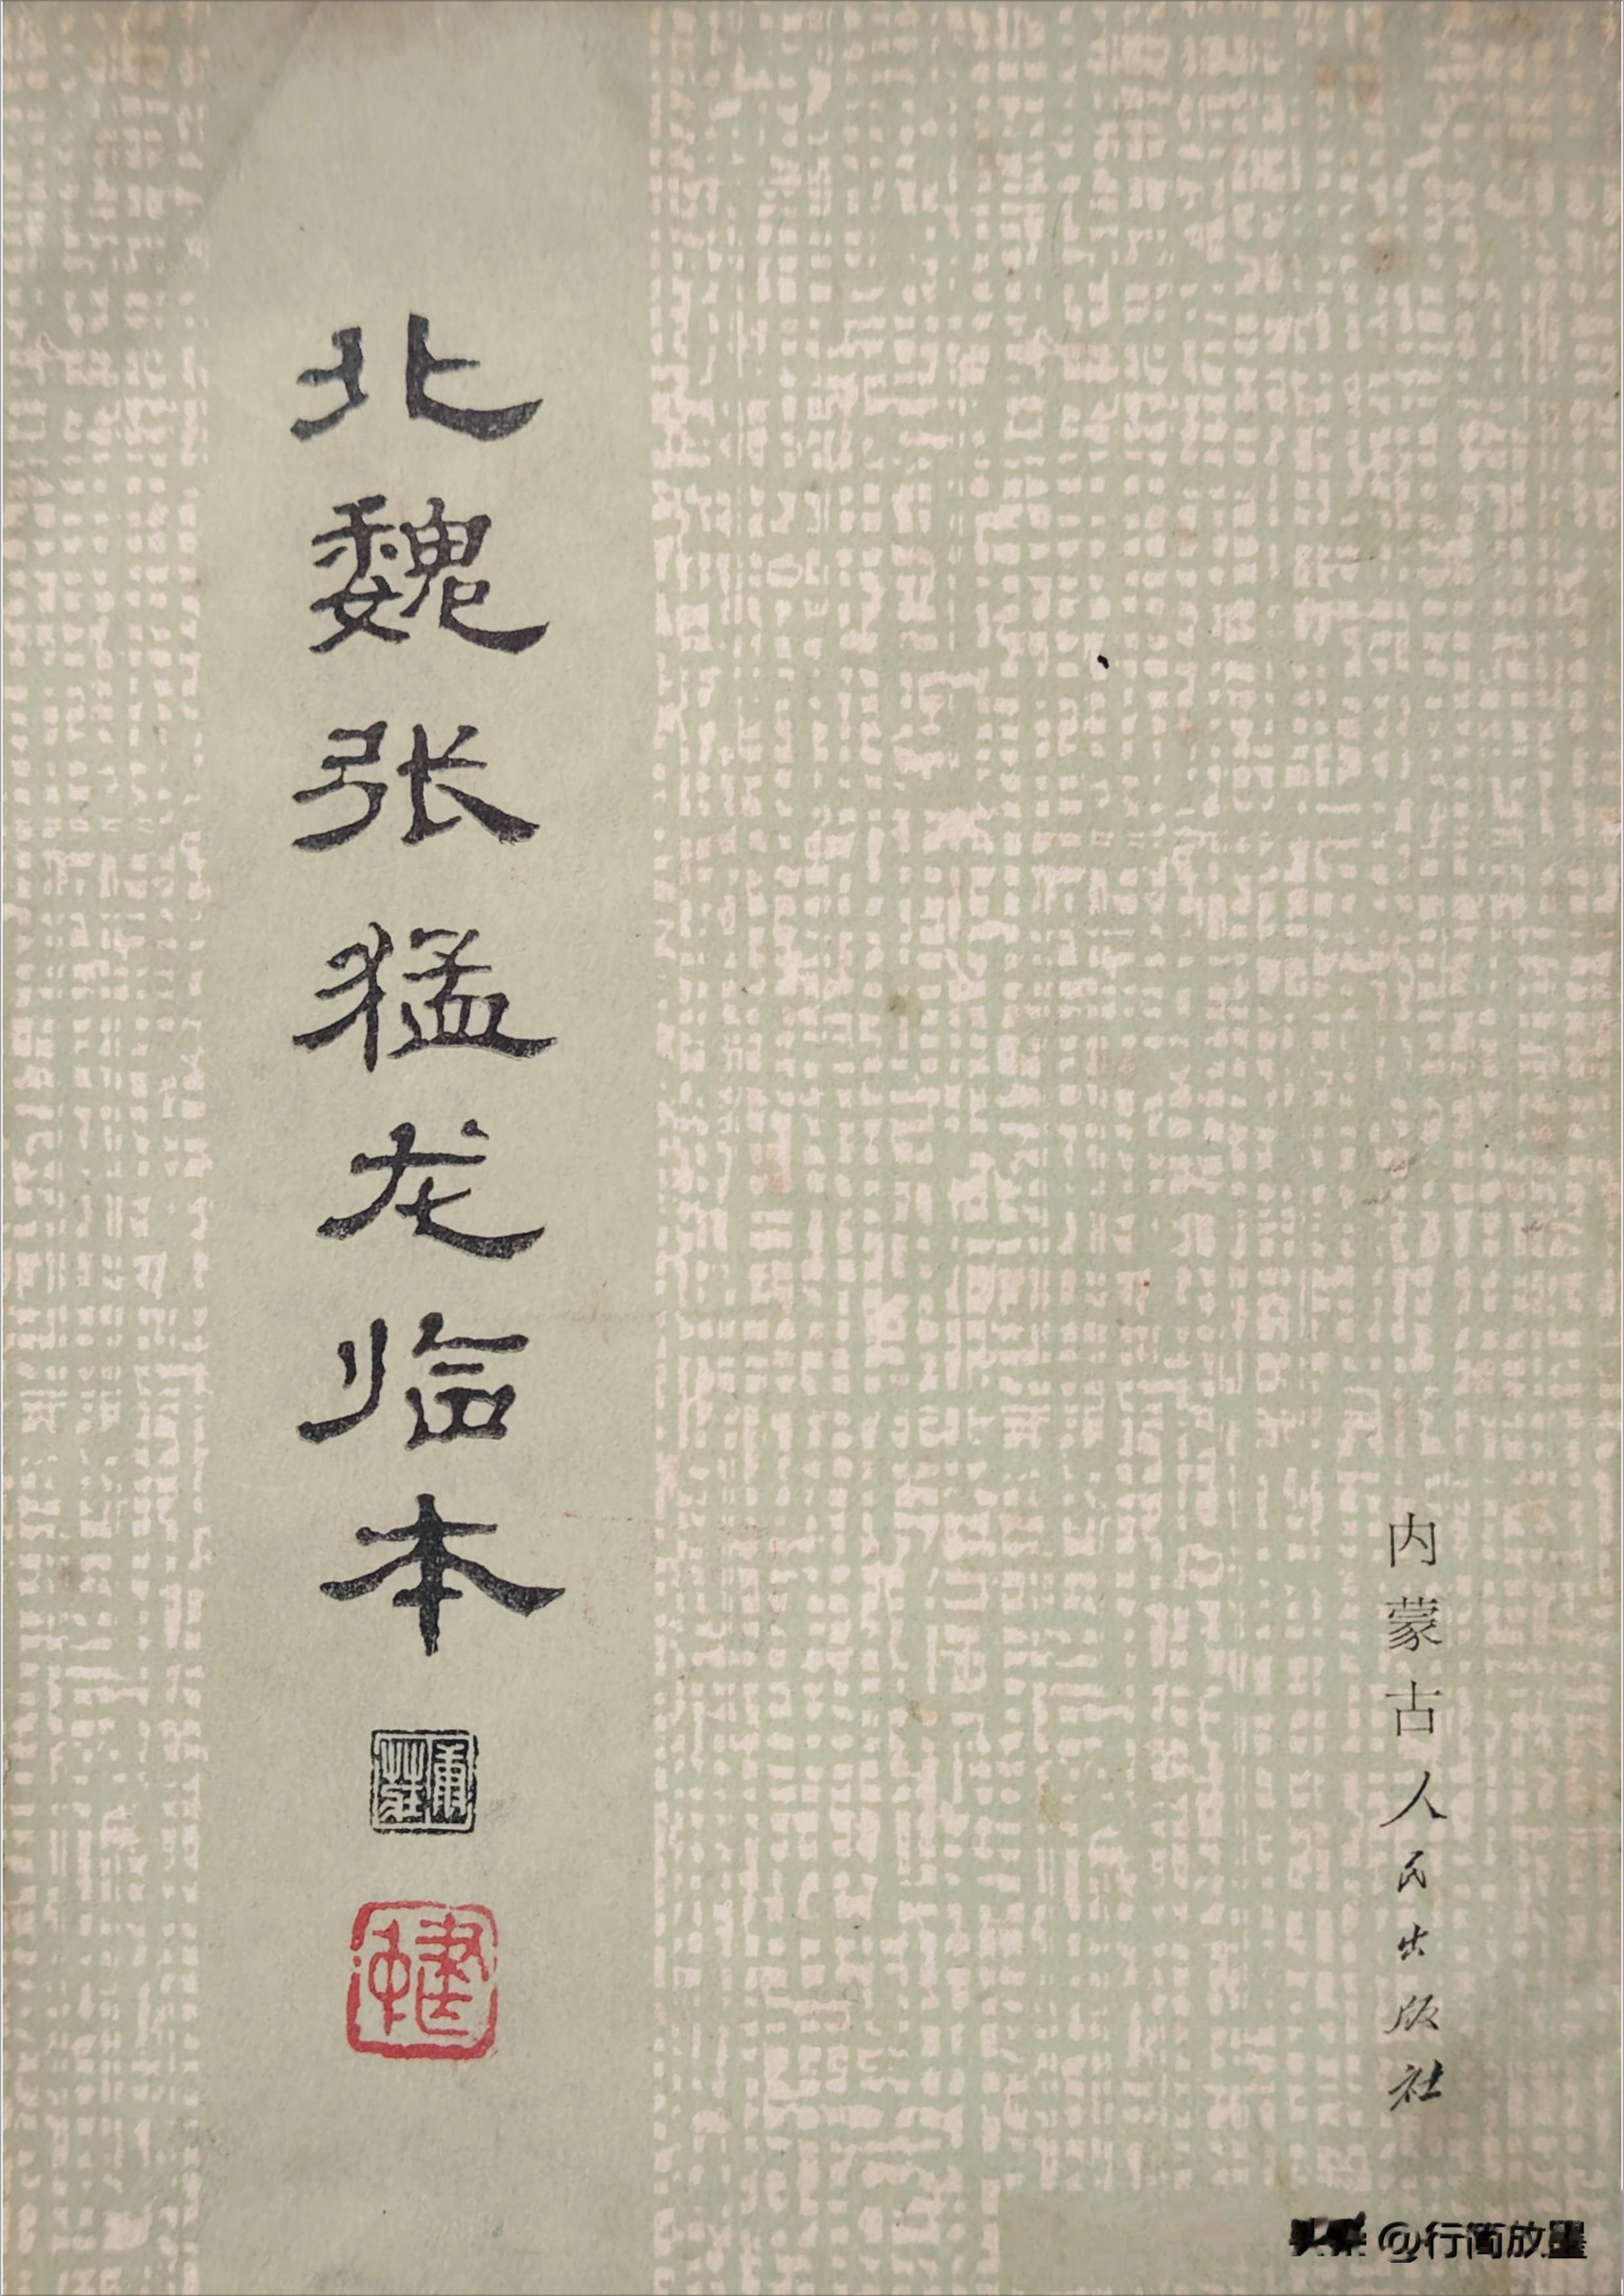 北魏张猛龙临本
内蒙古人民出版社
@行简放墨